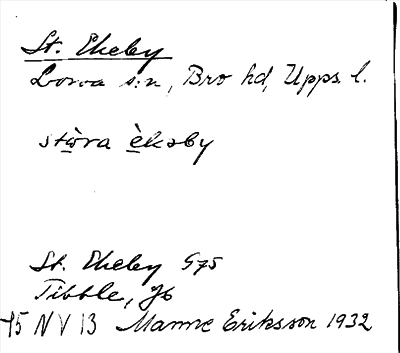 St. Ekeby
Lossa s:n, Bro hd, Upps. l.
stòra èkəby
St. Ekeby G75
Tibble, Jb
45 N V 13 Manne Eriksson 1932